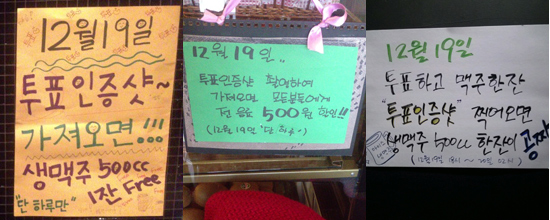 12월 19일
투표인증샷~
가져오면!!!
생맥주 500cc
1잔 Free
"단 하루만"
12월 19일..
투표인증샷 촬영하여
가져오면 모든분들에게
전 음료 500원 할인!!
(12월 19일 단 하루)
12월 19일
투표하고 맥주한잔
"투표인증샷" 찍어오면
생맥주 500cc 한잔이 공짜